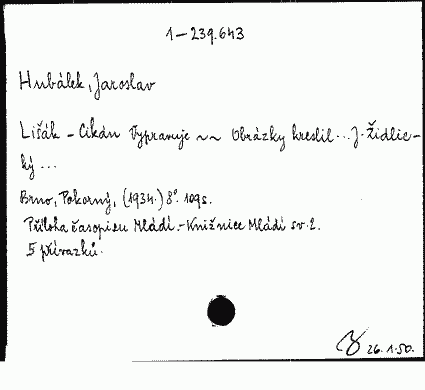 1-239.643
Hubálek, Jaroslav
Lišák - Cikán Vypravuje ~~ Obrázky kreslil... J. Židlic-
ký ...
Brno, Pokorný, (1934.) 8°. 109s.
Příloha časopisu Mládí. - Knižnice Mládí sv. 2.
5 přívazků.
26. 1. 50.